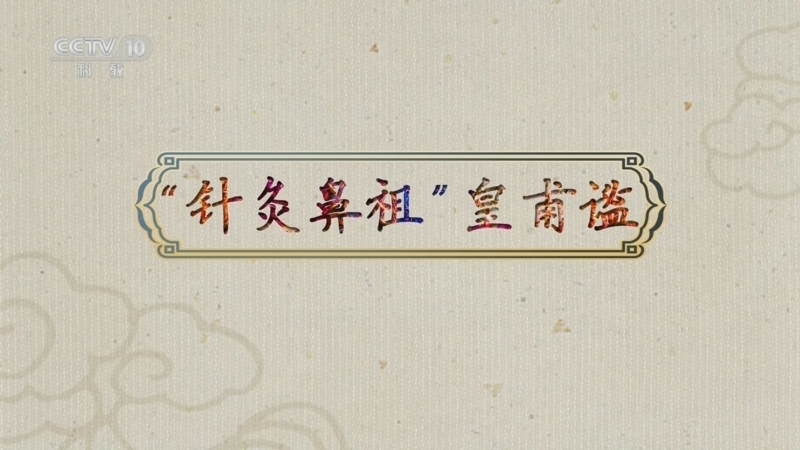 CCTV 10
科教
“针灸鼻祖”皇甫谧